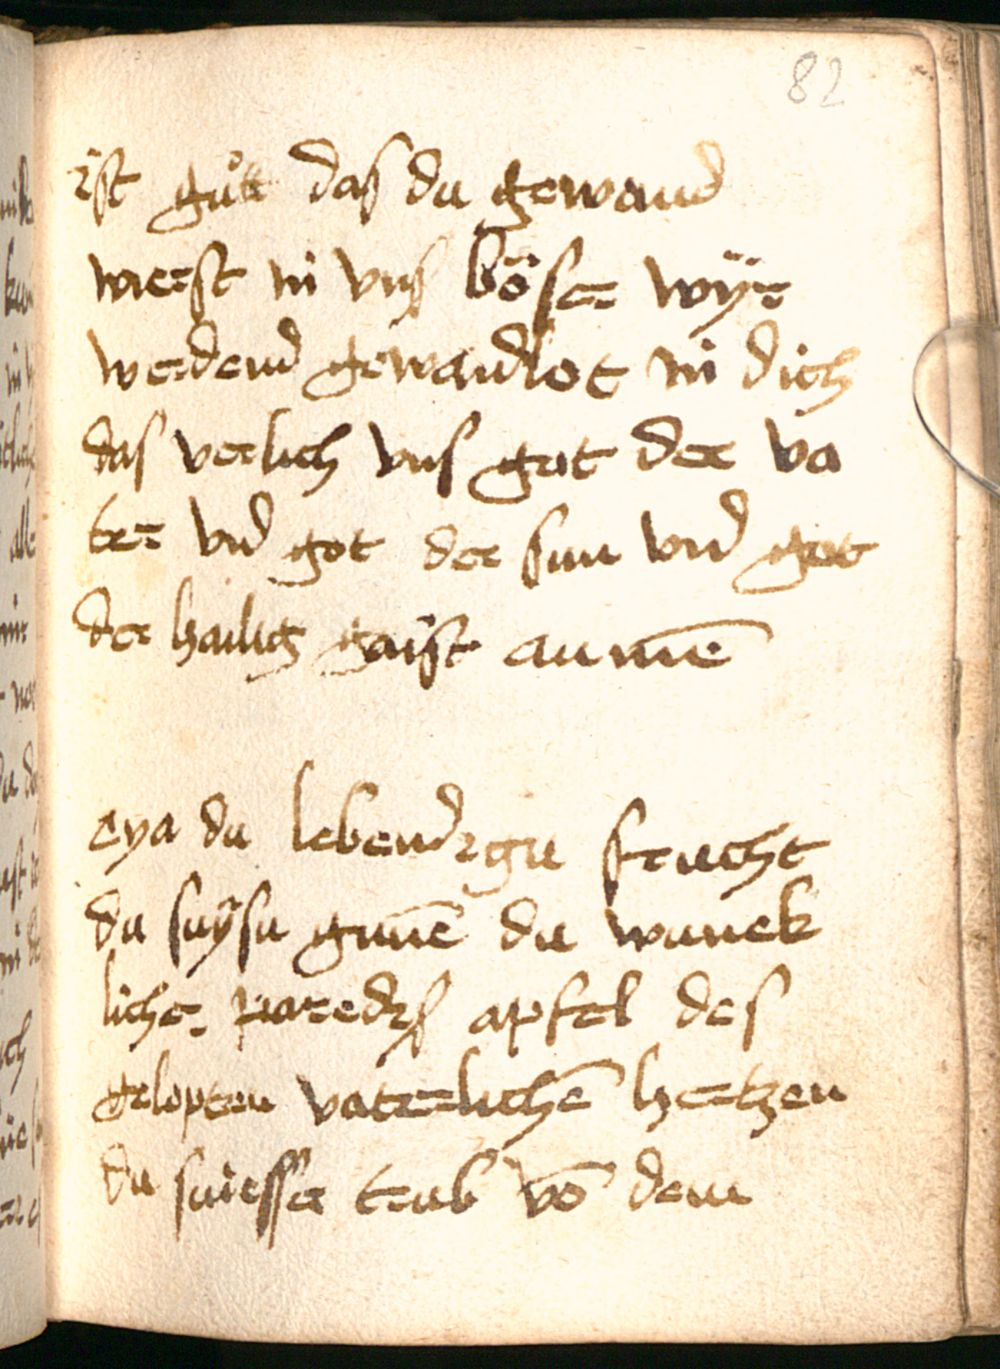 82
ist gůtt das du gewand
wierst in vns bo̎ser wÿr
werdend gewandlot in dich
das verlich vns got der va
ter vnd got der sun vnd got
der hailig gaist aumē
eya du lebendigu frucht
du suÿsu gumē du wunek
licher paredis apfel des
gelopten vaterlichē hertzen
du suiesser trub vō dem